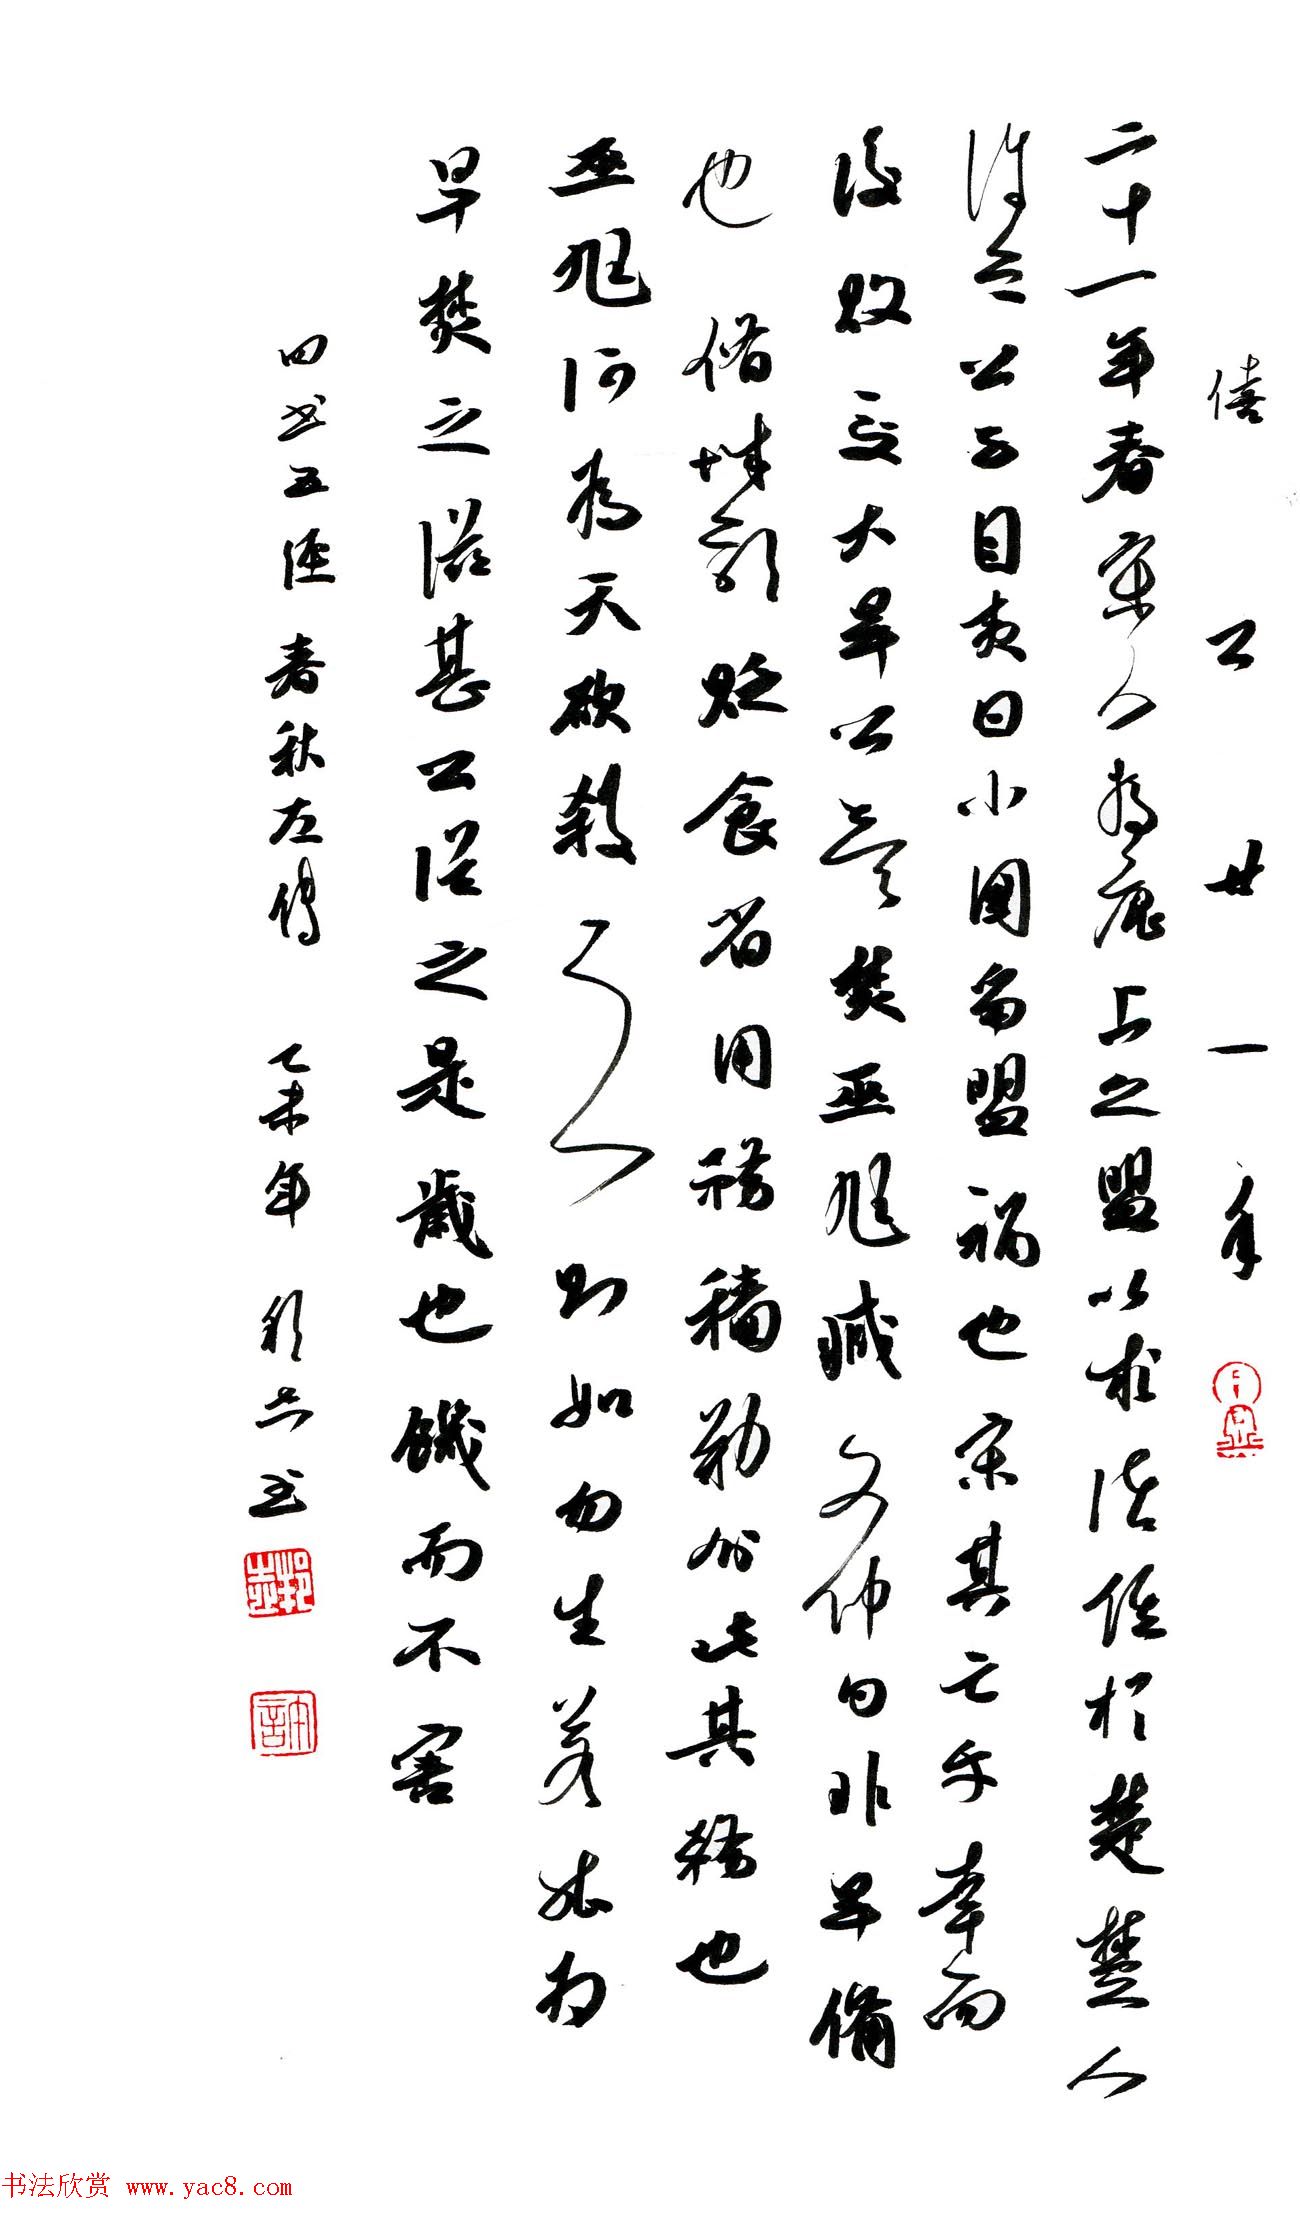 僖公廿一年
二十一年春宋人為鹿上之盟以求諸侯於楚楚人
許之公子目夷曰小國爭盟禍也宋其亡乎幸而
後敗 夏大旱公欲焚巫尪臧文仲曰非旱備
也 脩城郭貶食省用務穡勸分此其務也
巫尪何為天欲殺之則如勿生若能為
旱焚之滋甚公從之是歲也饑而不害
四書五經 春秋左傳 乙未年 邦志書
邦志
书法欣赏 www.yac8.com